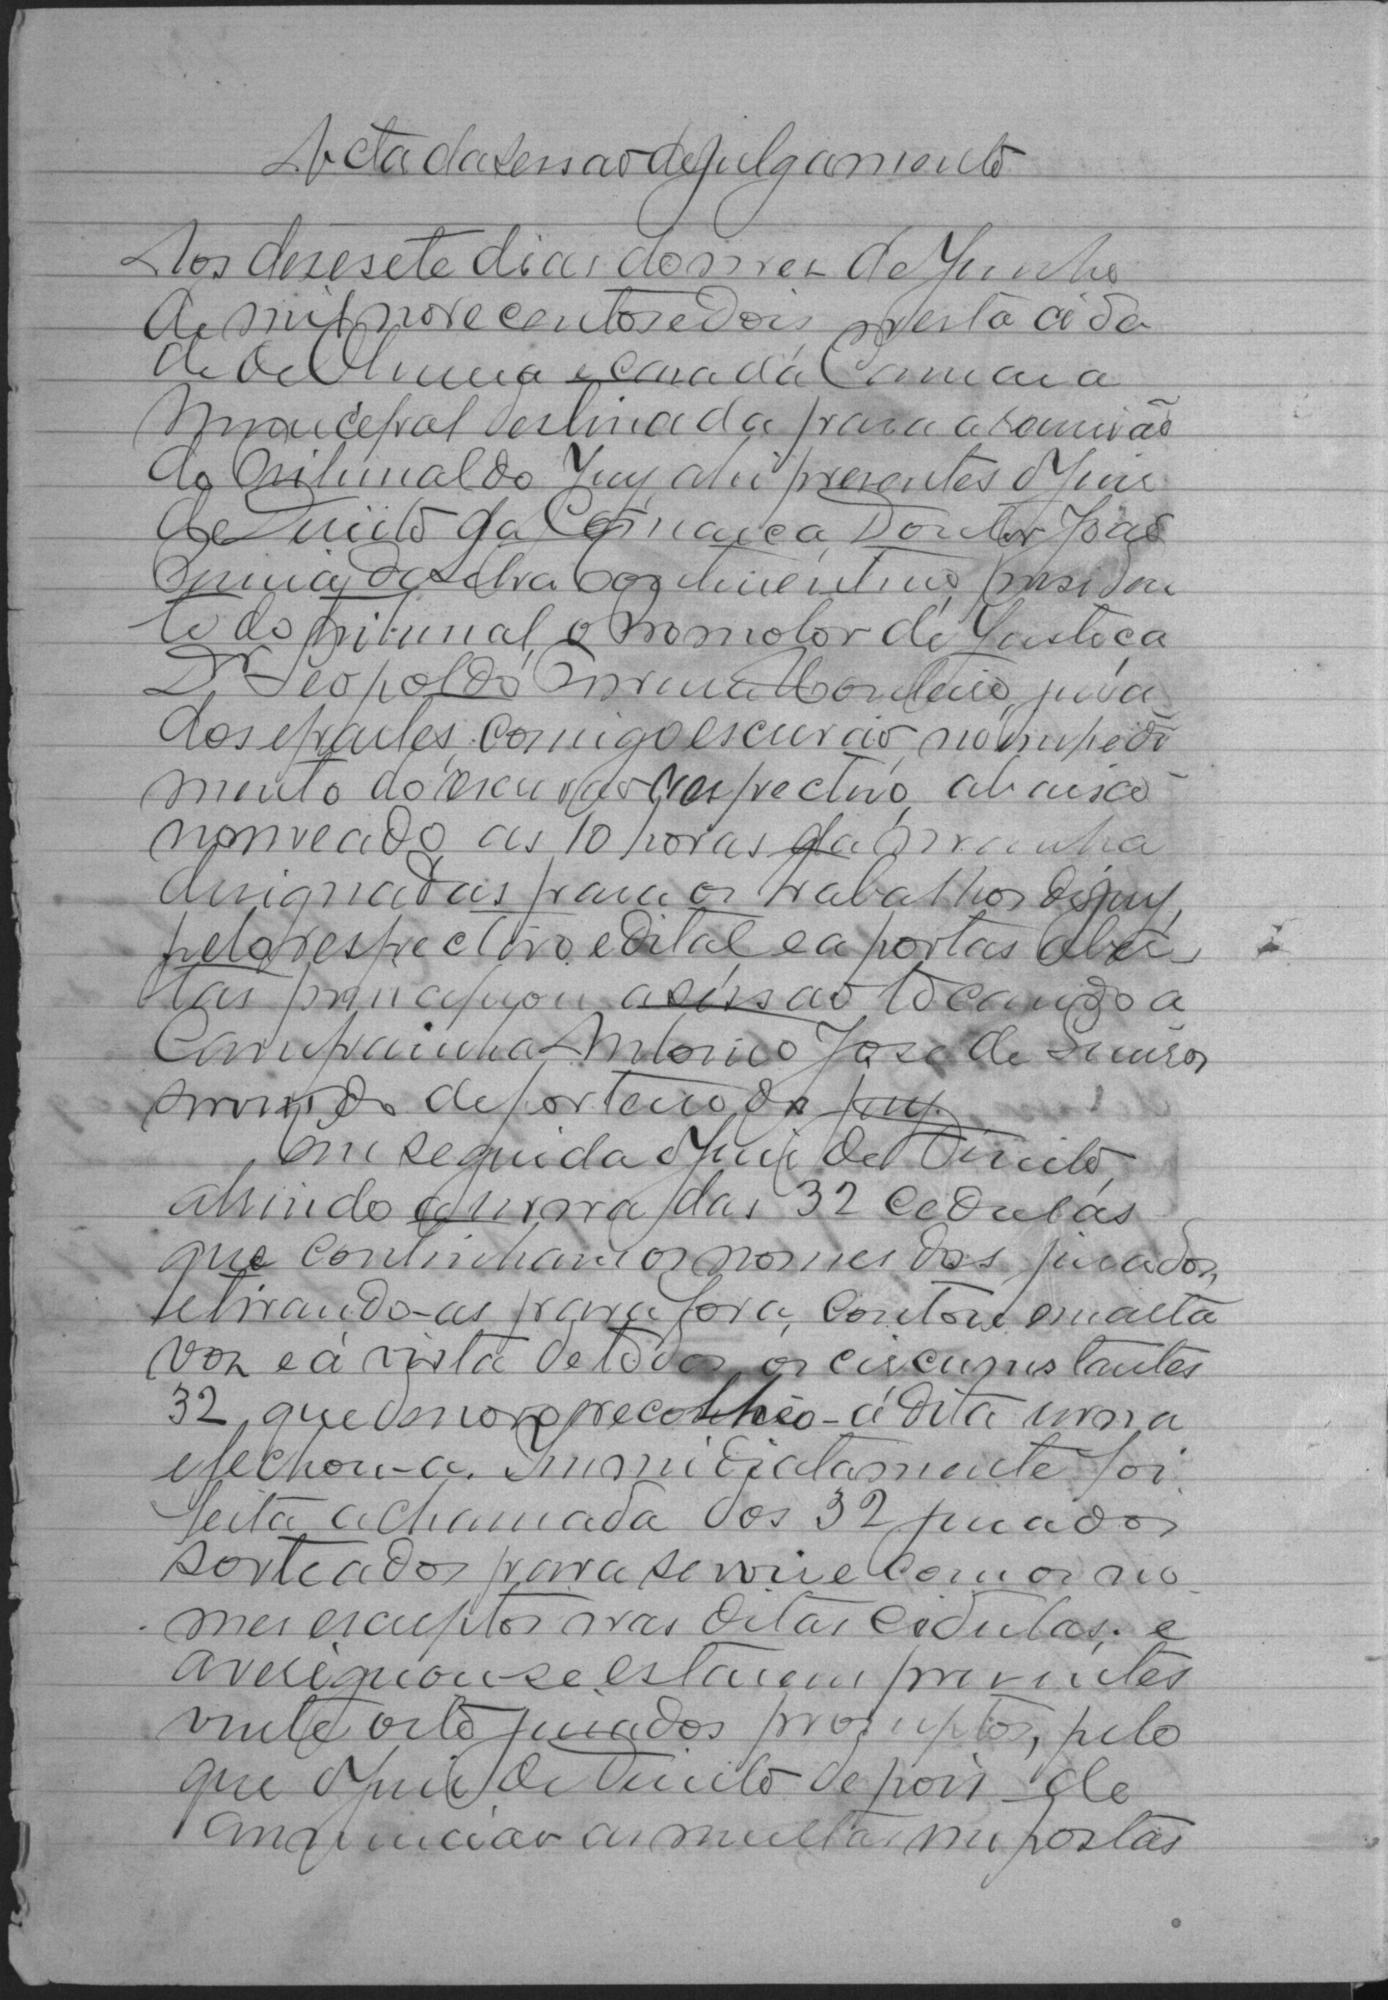 Acta da sessão de julgamento
Aos desesete dias do mez de Junho
de mil novecentos e dois, nesta cida
de de Oliveira e casa da Camara
Municipal destinada para a reunião
do Tribunal do Jury, ahi presentes o Juiz
de Direito da Comarca, Doutor João
da Silva presiden
te do tribunal, o Promotor de Justiça
Dr Leopoldo Monteiro, jura
dos e partes, comigo escrivão, no impedi
mento do escrivão respectivo, abaixo
nomeado, as 10 horas da manha
designadas para os trabalhos do jury,
pelo respectivo edital e a portas aber
tas principiou a sessão tocando a
Campainha Antonio José de
servindo de porteiro do jury.
Em seguida o Juiz de Direito,
abrindo a urna das 32 cedulas
que continham os nomes dos jurados,
e tirando-as para fora, contou em alta
voz e á vista de todos os circumstantes
32, que de novo recolheo-á dita urna
e fechou-a. Immidiatamente foi
feita a chamada dos 32 jurados
sorteados para servir e com os no
mes escriptos nas ditas cedulas, e
averiguou-se estarem presentes
vinte oito jurados promptos, pelo
que o Juiz de Direito depois de
annunciar as multas impostas